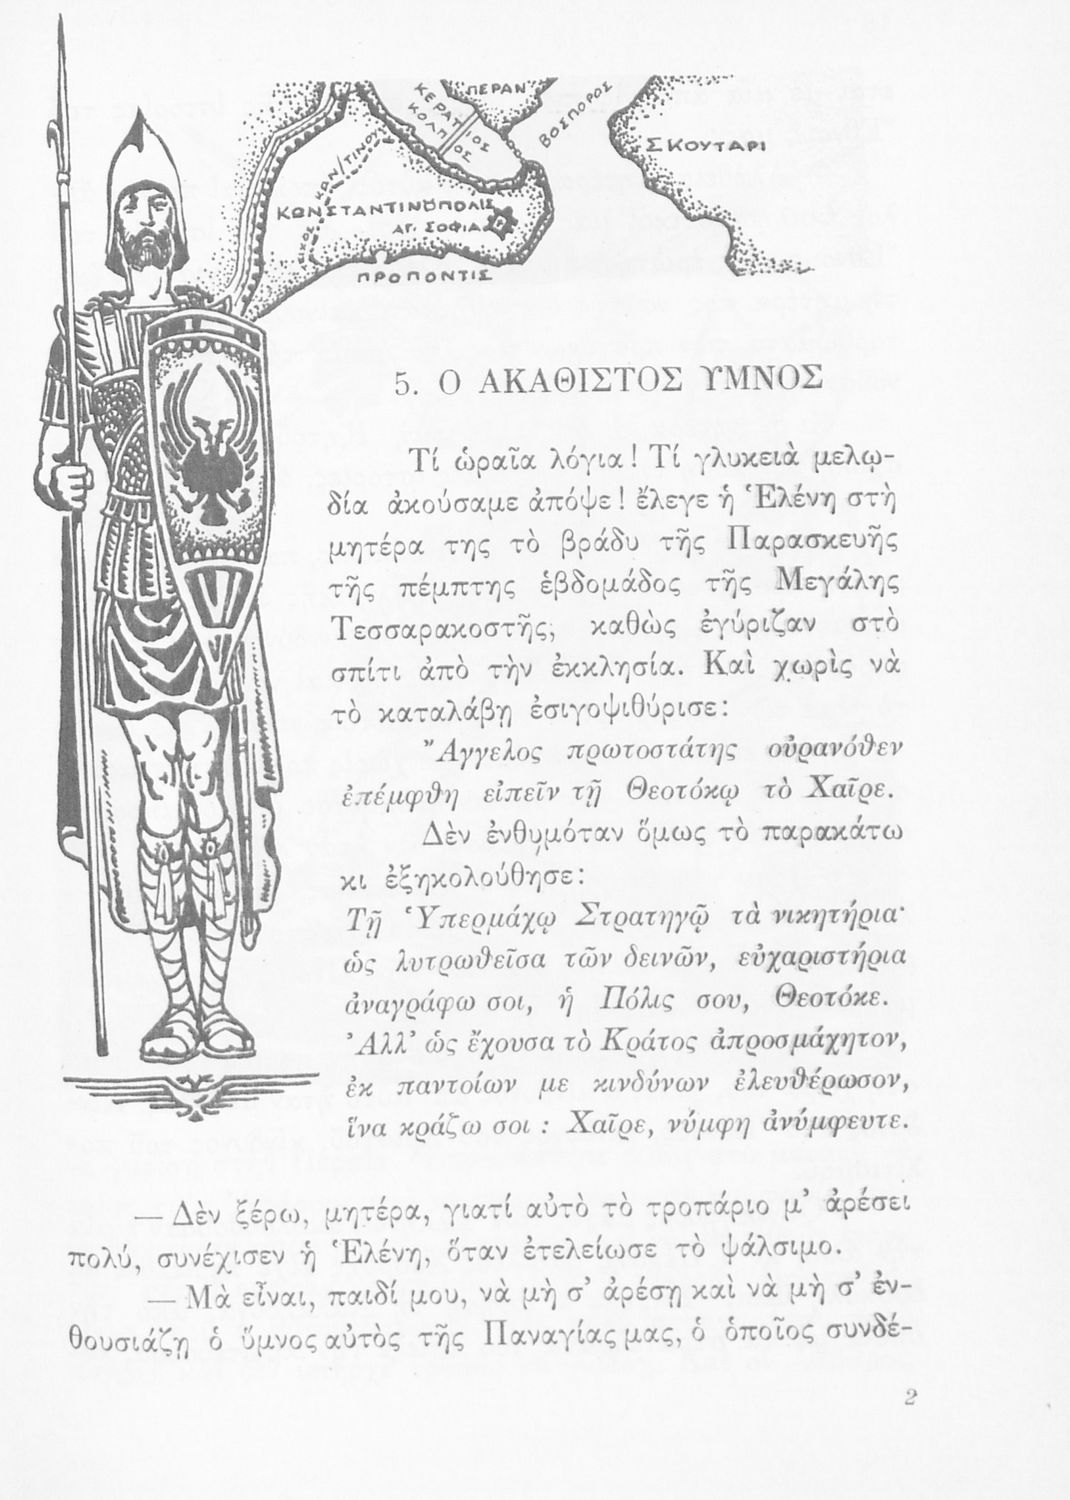 ΠΕΡΑΝ
ΚΕΡΑΤΙΟΣ
ΚΟΛΠΟΣ
ΒΟΣΠΟΡΟΣ
ΣΚΟΥΤΑΡΙ
ΚΩΝΣΤΑΝΤΙΝΟΥΠΟΛΙΣ
ΑΓ. ΣΟΦΙΑ
ΠΡΟΠΟΝΤΙΣ
5. Ο ΑΚΑΘΙΣΤΟΣ ΥΜΝΟΣ
Τί ὡραῖα λόγια! Τί γλυκειὰ μελῳ-
δία ἀκούσαμε ἀπόψε! ἔλεγε ἡ Ἑλένη στὴ
μητέρα της τὸ βράδυ τῆς Παρασκευῆς
τῆς πέμπτης ἑβδομάδος τῆς Μεγάλης
Τεσσαρακοστῆς, καθὼς ἐγύριζαν στὸ
σπίτι ἀπὸ τὴν ἐκκλησία. Καὶ χωρὶς νὰ
τὸ καταλάβῃ ἐσιγοψιθύρισε:
Ἄγγελος πρωτοστάτης οὐρανόθεν
ἐπέμφθη εἰπεῖν τῇ Θεοτόκῳ τὸ Χαῖρε.
Δὲν ἐνθυμόταν ὅμως τὸ παρακάτω
κι ἐξηκολούθησε:
Τῇ Ὑπερμάχῳ Στρατηγῷ τὰ νικητήρια·
ὡς λυτρωθεῖσα τῶν δεινῶν, εὐχαριστήρια
ἀναγράφω σοι, ἡ Πόλις σου, Θεοτόκε.
Ἀλλ’ ὡς ἔχουσα τὸ Κράτος ἀπροσμάχητον,
ἐκ παντοίων με κινδύνων ἐλευθέρωσον,
ἵνα κράζω σοι : Χαῖρε, νύμφη ἀνύμφευτε.
— Δὲν ξέρω, μητέρα, γιατί αὐτὸ τὸ τροπάριο μ’ ἀρέσει
πολύ, συνέχισεν ἡ Ἑλένη, ὅταν ἐτελείωσε τὸ ψάλσιμο.
— Μὰ εἶναι, παιδί μου, νὰ μὴ σ’ ἀρέσῃ καὶ νὰ μὴ σ’ ἐν-
θουσιάζῃ ὁ ὕμνος αὐτὸς τῆς Παναγίας μας, ὁ ὁποῖος συνδέ-
2